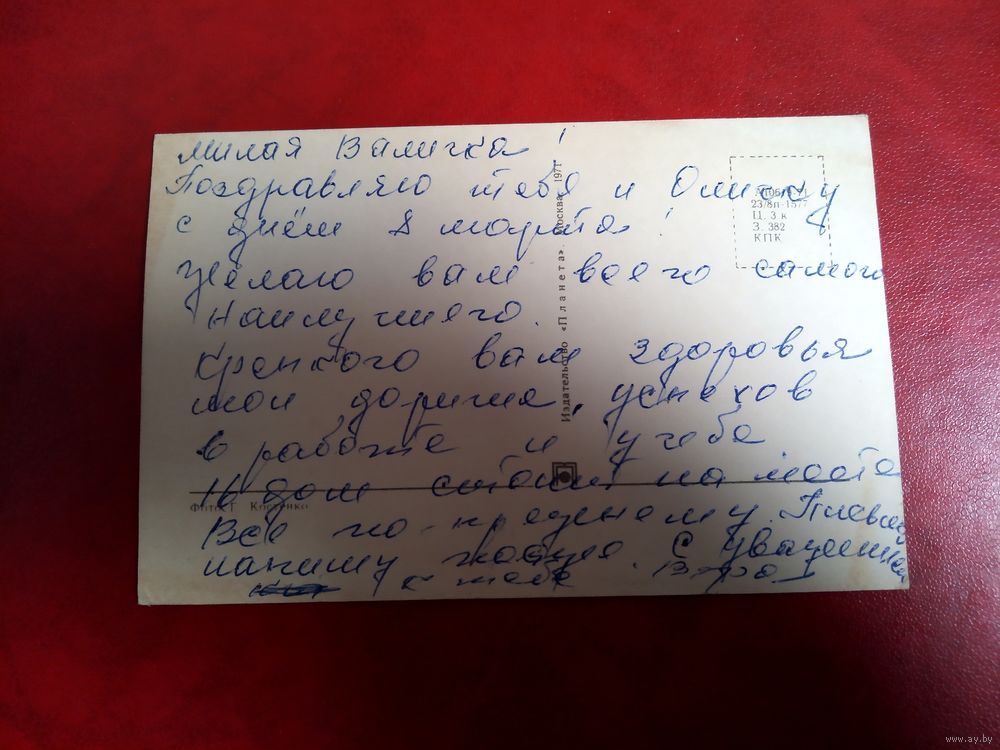 милая Валичка!
Поздравляю тебя и Оличку
с днём 8 марта!
Желаю вам всего самого
наилучшего.
Крепкого вам здоровья
мои дорогие, успехов
в работе и учебе
дом стоит на месте
Все по-прежнему.
нашему
С уважением
к тебе Вера
Издательство «Планета». Москва. 1971
23/8п-1577
Ц. 3 к
З. 382
КПК
Фото Г. Костенко
www.ay.by